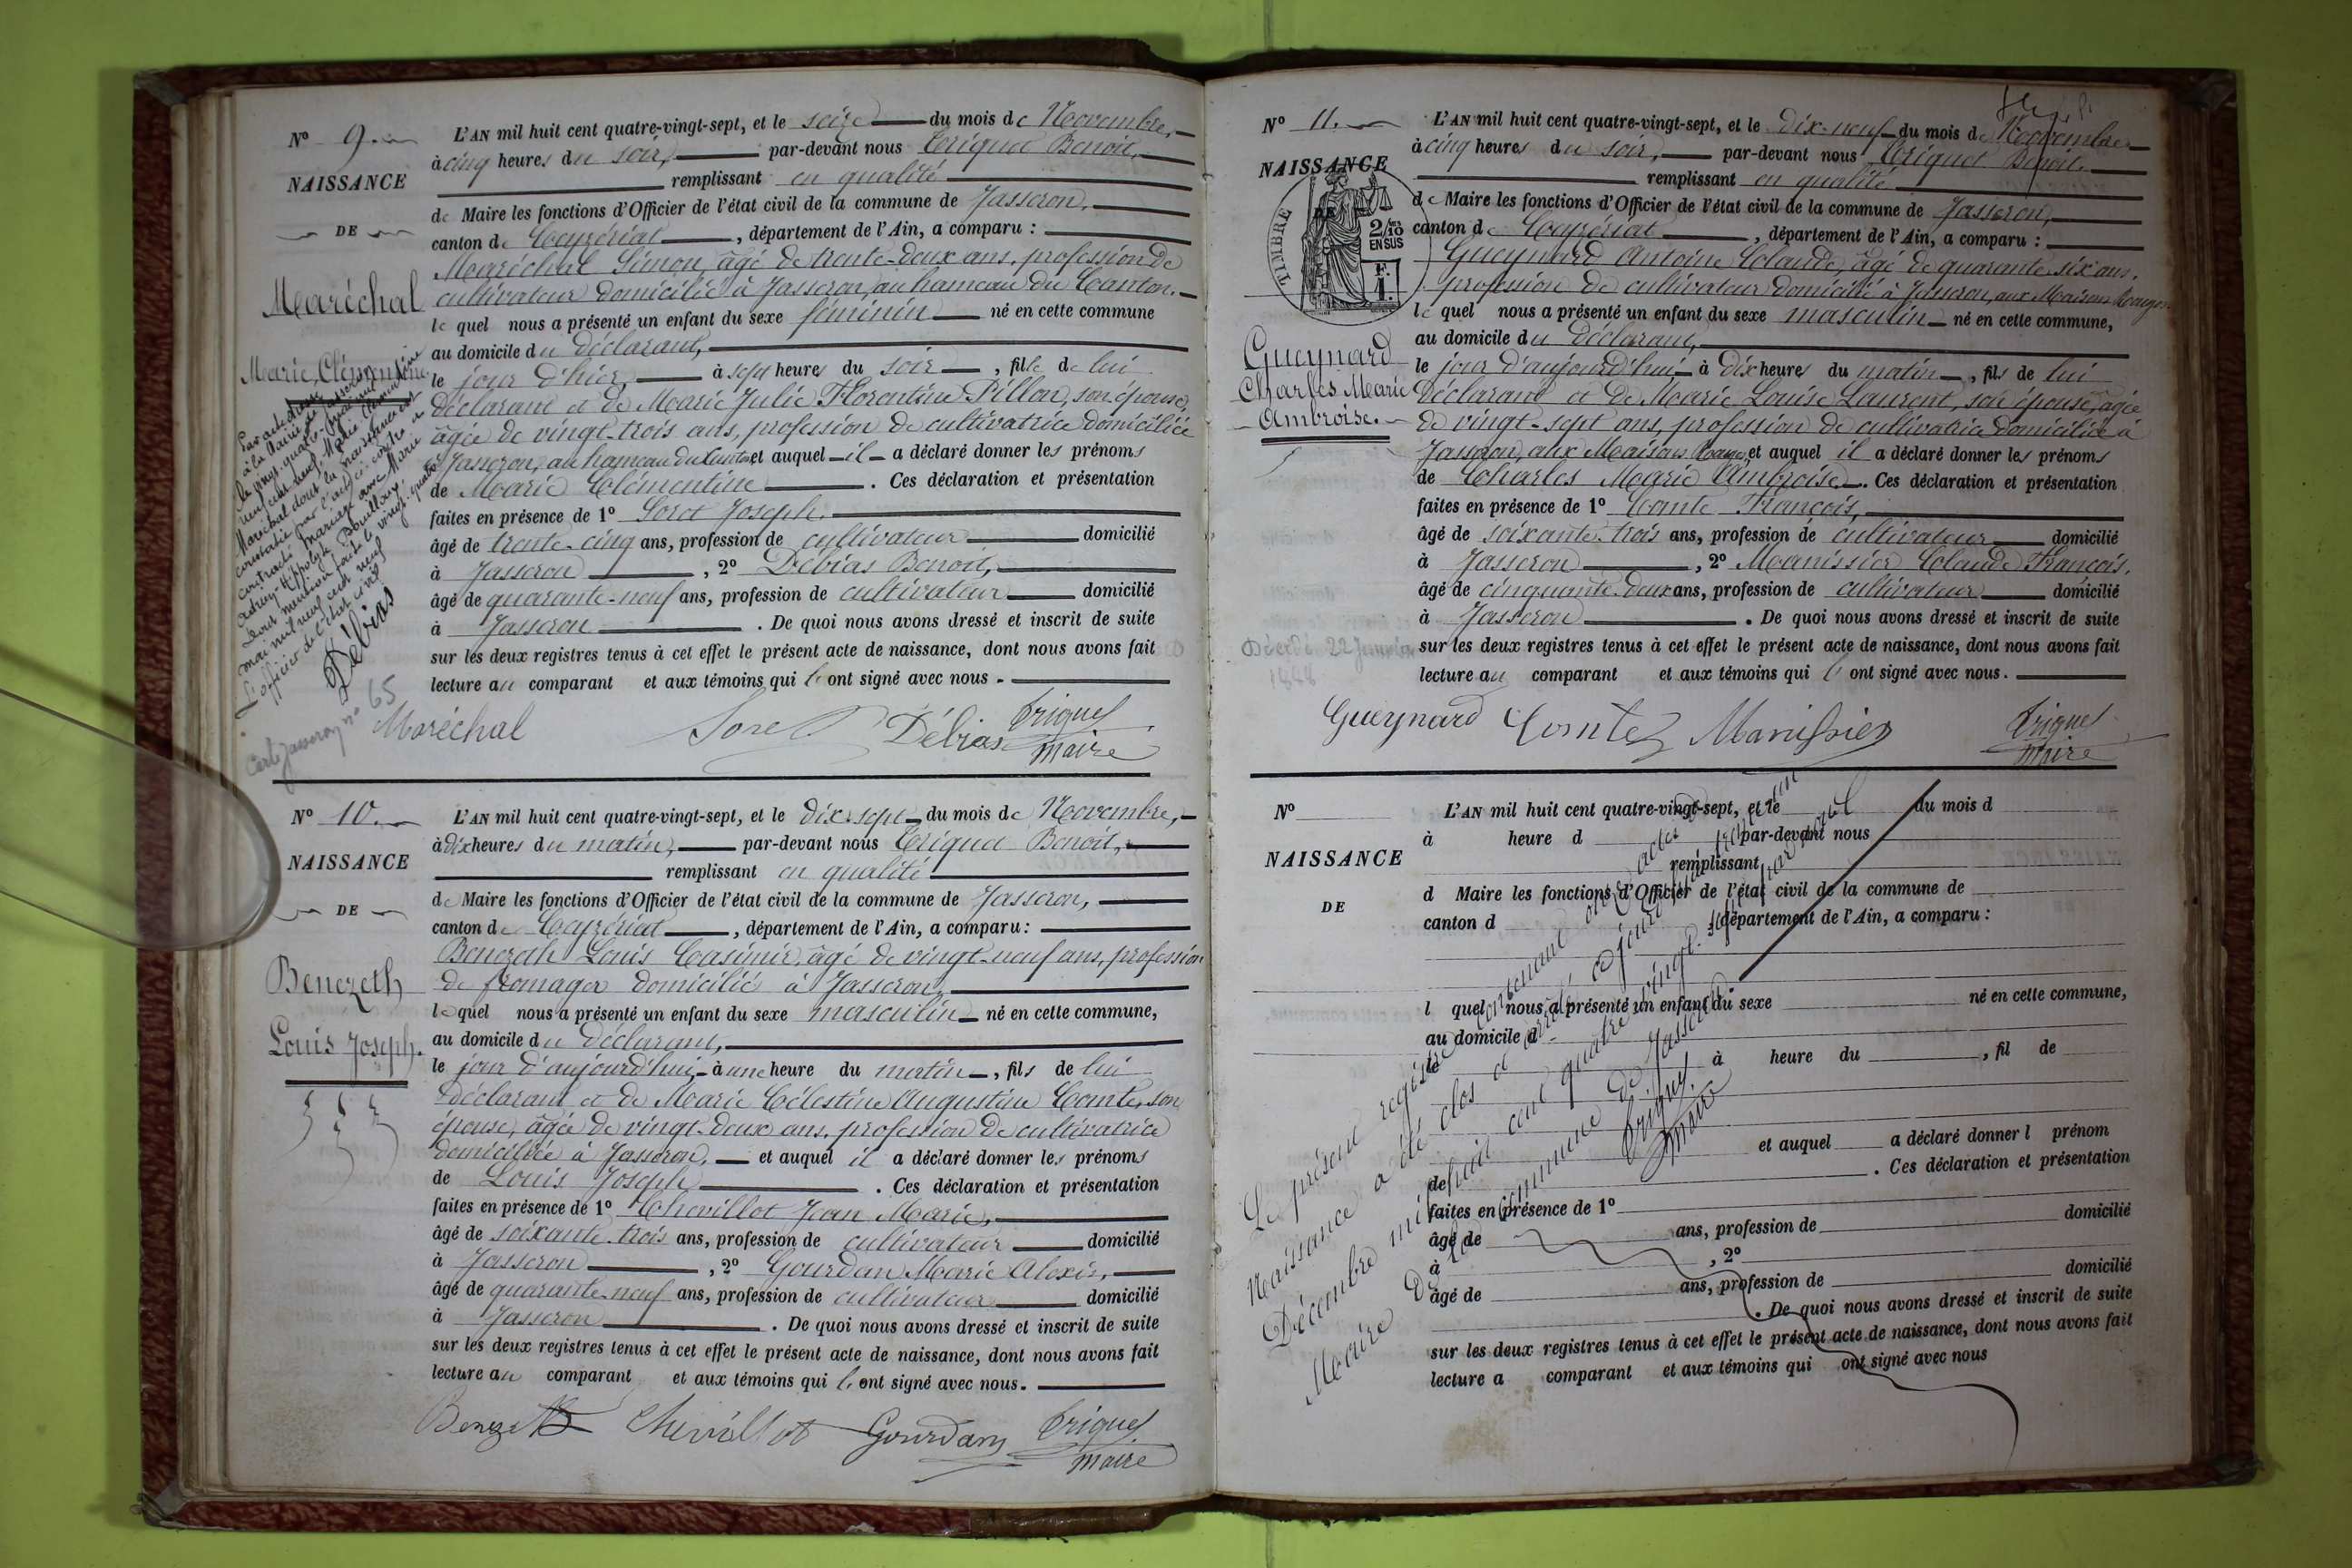 N° 9.
NAISSANCE
DE
Maréchal
Marie, Clémentine
L'AN mil huit cent quatre-vingt-sept, et le seize du mois de Novembre,
à cinq heures du soir, par-devant nous Triquet Benoit,
remplissant en qualité
de Maire les fonctions d'Officier de l'état civil de la commune de Jasseron,
canton de Ceyzériat, département de l'Ain, a comparu :
Maréchal Simon, âgé de trente-deux ans, profession de
cultivateur domicilié à Jasseron, au hameau du Canton.
lequel nous a présenté un enfant du sexe féminin né en cette commune
au domicile du déclarant,
le jour d'hier, à sept heures du soir, fille de lui
déclarant et de Marie Julie Florentine Pillon, son épouse,
âgée de vingt-trois ans, profession de cultivatrice domiciliée
à Jasseron, au hameau du Canton et auquel il a déclaré donner les prénoms
de Marie Clémentine. Ces déclaration et présentation
faites en présence de 1° Soret Joseph,
âgé de trente-cinq ans, profession de cultivateur domicilié
à Jasseron, 2° Débias Benoit,
âgé de quarante-neuf ans, profession de cultivateur domicilié
à Jasseron. De quoi nous avons dressé et inscrit de suite
sur les deux registres tenus à cet effet le présent acte de naissance, dont nous avons fait
lecture au comparant et aux témoins qui l'ont signé avec nous.
Maréchal Soret Débias Triquet
maire
à la Mairie de Jasseron
le vingt-quatre
mil neuf cent neuf, Marie Clémentine
Maréchal dont la naissance est
constatée par l'acte ci-contre a
contracté mariage avec Marie
Hippolyte Bouilloux.
Dont mention faite le vingt-quatre
mai mil neuf cent neuf
L'officier de l'état civil
Débias
Cert Jasseron n° 65
N° 10.
NAISSANCE
DE
Benezeth
Louis Joseph.
L'AN mil huit cent quatre-vingt-sept, et le dix-sept du mois de Novembre,
à dix heures du matin, par-devant nous Triquet Benoit,
remplissant en qualité
de Maire les fonctions d'Officier de l'état civil de la commune de Jasseron,
canton de Ceyzériat, département de l'Ain, a comparu :
Benezeth Louis Casimir, âgé de vingt-neuf ans, profession
de fromager domicilié à Jasseron,
lequel nous a présenté un enfant du sexe masculin né en cette commune,
au domicile du déclarant,
le jour d'aujourd'hui à une heure du matin, fils de lui
déclarant et de Marie Célestine Augustine Comte, son
épouse, âgée de vingt-deux ans, profession de cultivatrice
domiciliée à Jasseron, et auquel il a déclaré donner les prénoms
de Louis Joseph. Ces déclaration et présentation
faites en présence de 1° Chevillot Jean Marie,
âgé de soixante-trois ans, profession de cultivateur domicilié
à Jasseron, 2° Gourdan Marie Alexis,
âgé de quarante-neuf ans, profession de cultivateur domicilié
à Jasseron. De quoi nous avons dressé et inscrit de suite
sur les deux registres tenus à cet effet le présent acte de naissance, dont nous avons fait
lecture au comparant et aux témoins qui l'ont signé avec nous.
Benezeth Chevillot Gourdan Triquet
maire
N° 11.
NAISSANCE
DE
TIMBRE
2/10
EN SUS
F.
1.
Gueynard
Charles Marie
Ambroise.
L'AN mil huit cent quatre-vingt-sept, et le dix-neuf du mois de Novembre
à cinq heures du soir, par-devant nous Triquet Benoit,
remplissant en qualité
de Maire les fonctions d'Officier de l'état civil de la commune de Jasseron,
canton de Ceyzériat, département de l'Ain, a comparu :
Gueynard Antoine Claude, âgé de quarante-six ans,
profession de cultivateur domicilié à Jasseron, aux Maisons
lequel nous a présenté un enfant du sexe masculin né en cette commune,
au domicile du déclarant,
le jour d'aujourd'hui à dix heures du matin, fils de lui
déclarant et de Marie Louise Laurent, son épouse, âgée
de vingt-sept ans, profession de cultivatrice domiciliée à
Jasseron, aux Maisons et auquel il a déclaré donner les prénoms
de Charles Marie Ambroise. Ces déclaration et présentation
faites en présence de 1° Comte François,
âgé de soixante-trois ans, profession de cultivateur domicilié
à Jasseron, 2° Manissier Claude François,
âgé de cinquante-deux ans, profession de cultivateur domicilié
à Jasseron. De quoi nous avons dressé et inscrit de suite
sur les deux registres tenus à cet effet le présent acte de naissance, dont nous avons fait
lecture au comparant et aux témoins qui l'ont signé avec nous.
Décédé 22 Janvier
Gueynard Comte Manissier Triquet
maire
N°
NAISSANCE
DE
L'AN mil huit cent quatre-vingt-sept, et le du mois d
à heure d par-devant nous
remplissant
d Maire les fonctions d'Officier de l'état civil de la commune de
canton d , département de l'Ain, a comparu :
l quel nous a présenté un enfant du sexe né en cette commune,
au domicile d
le à heure du , fil de
et auquel a déclaré donner l prénom
de . Ces déclaration et présentation
faites en présence de 1°
âgé de ans, profession de domicilié
à , 2°
âgé de ans, profession de domicilié
. De quoi nous avons dressé et inscrit de suite
sur les deux registres tenus à cet effet le présent acte de naissance, dont nous avons fait
lecture a comparant et aux témoins qui ont signé avec nous
Le présent registre contenant onze actes de
Naissance a été clos et arrêté cejourd'hui trente-un
Décembre mil huit cent quatre-vingt-sept par nous
Maire de la commune de Jasseron
Triquet
maire